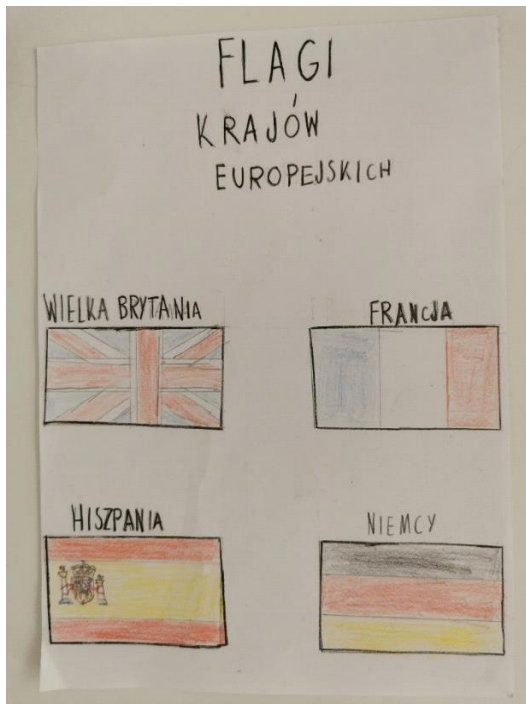 FLAGI
KRAJÓW
EUROPEJSKICH
WIELKA BRYTANIA
FRANCJA
HISZPANIA
NIEMCY